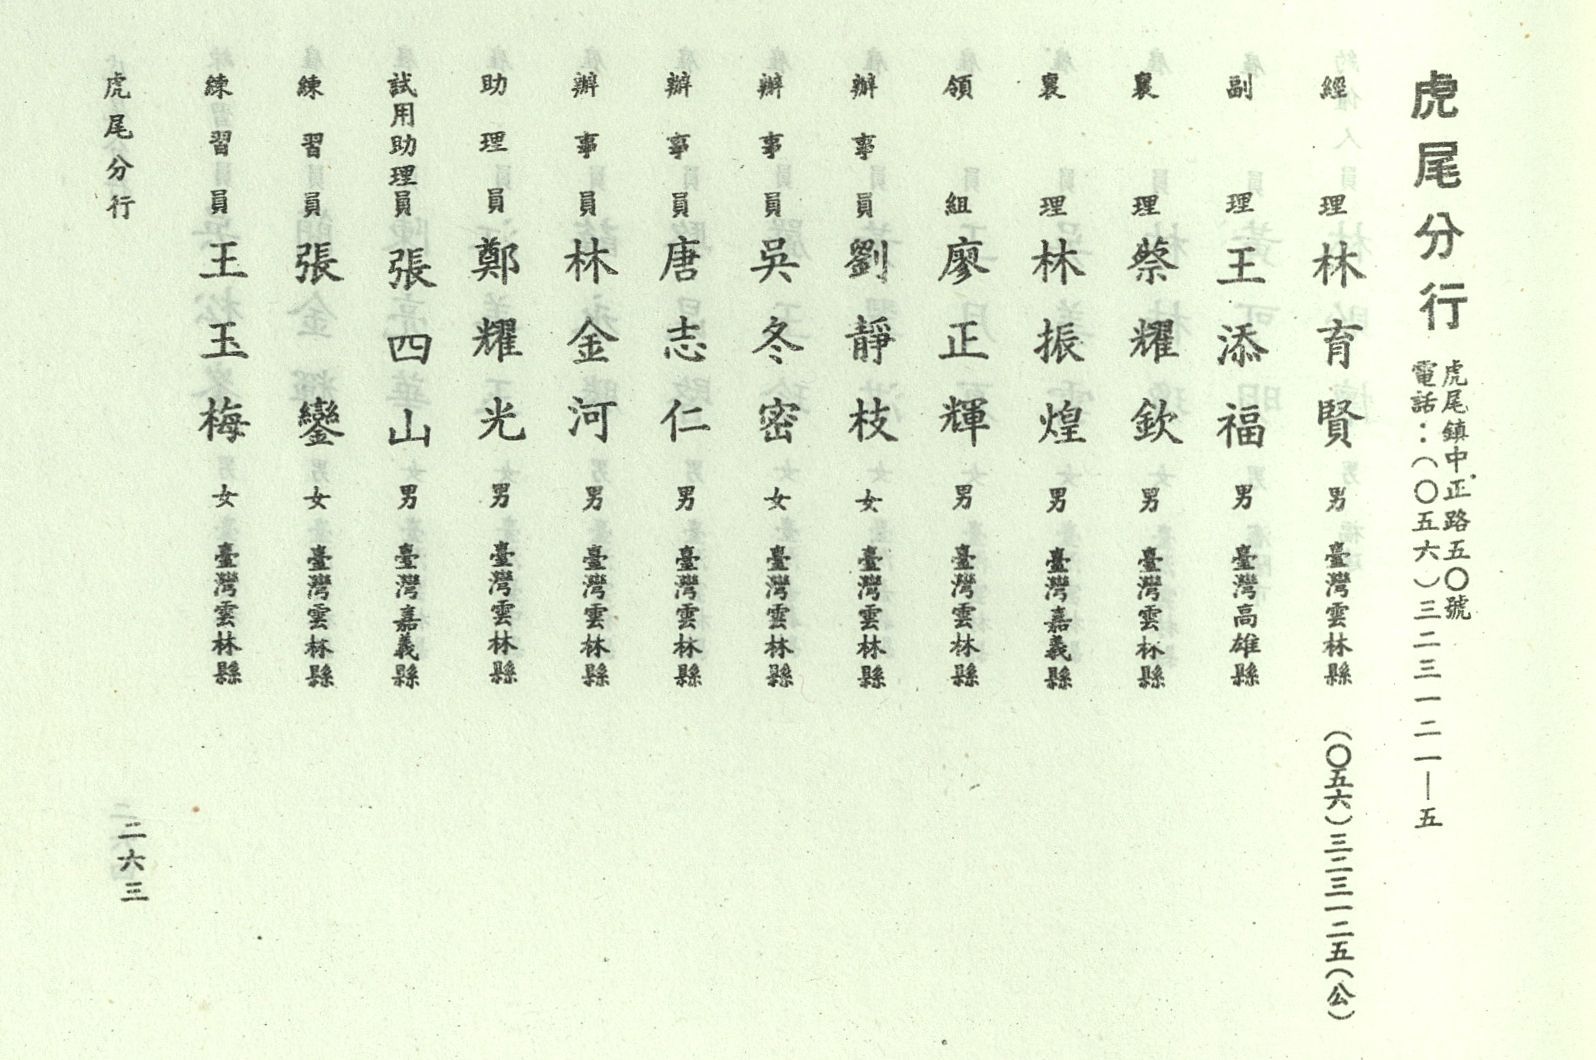 虎尾分行
虎尾鎮中正路五〇號
電話：（〇五六）三二三一二一—五
經理 林育賢 男 臺灣雲林縣 （〇五六）三二三一二五（公）
副理 王添福 男 臺灣高雄縣
襄理 蔡耀欽 男 臺灣雲林縣
襄理 林振煌 男 臺灣嘉義縣
領組 廖正輝 男 臺灣雲林縣
辦事員 劉靜枝 女 臺灣雲林縣
辦事員 吳冬密 女 臺灣雲林縣
辦事員 唐志仁 男 臺灣雲林縣
辦事員 林金河 男 臺灣雲林縣
助理員 鄭耀光 男 臺灣雲林縣
試用助理員 張四山 男 臺灣嘉義縣
練習員 張鑾 女 臺灣雲林縣
練習員 王玉梅 女 臺灣雲林縣
虎尾分行
二六三